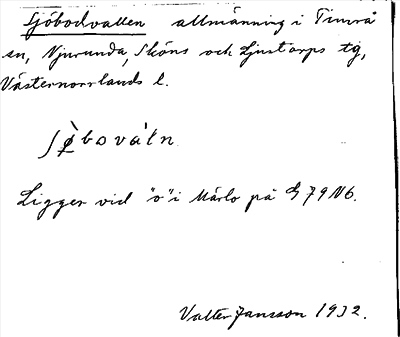 Sjöbodvallen allmänning i Timrå
sn, Njurunda, Sköns och Ljustorps tg,
Västernorrlands l.
ʃø̀bovátn
Ligger vid "o" i Märlo på G 79 N6.
Valter Jansson 1932.